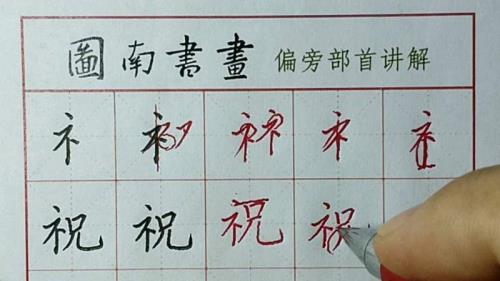 圖南書畫 偏旁部首讲解
礻 礻 礻 礻 礻 礻
祝 祝 祝 祝